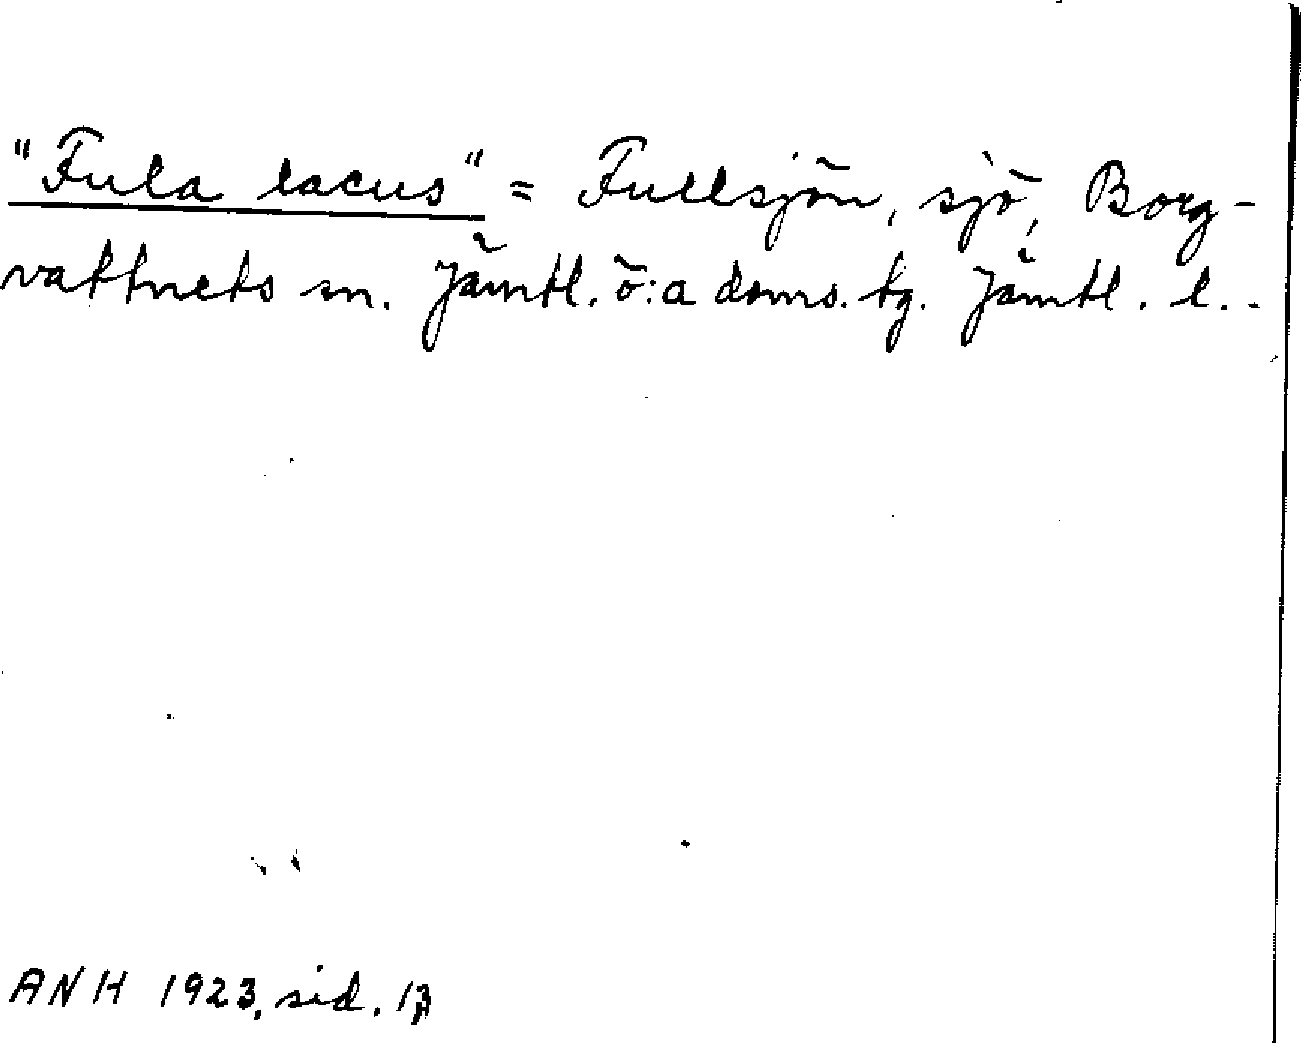 "Fula lacus" = Fullsjön, sjö, Borg-
vattnets sn. Jämtl. ö:a doms. tg. Jämtl. l..
ANH 1923, sid.